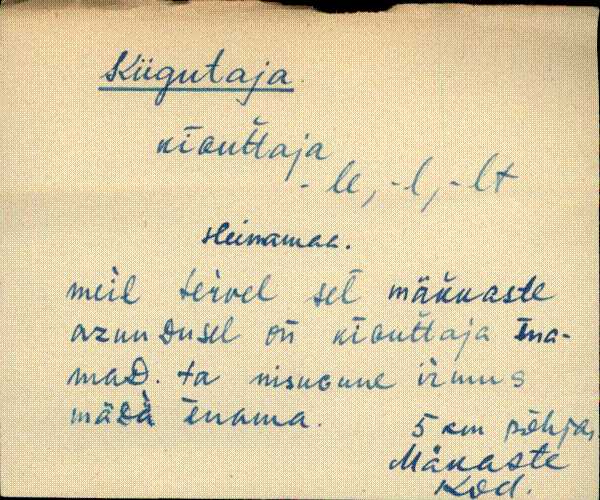 Kiigutaja
kiɢuťtaja
- le, -l, -lt
Heinamaa.
meil tervel sel mäkkaste
azundusel on kiɢuťtaja ina-
maD. ta nisuɢune irmus
mäDä inama.
5 km põhja,
Mäkaste
Kod.